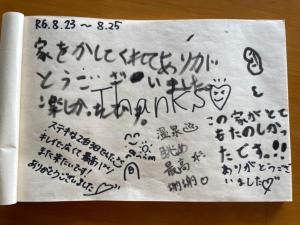 R6.8.23～8.25
家をかしてくれてありが
とうございました
楽しかったです!
Thanks
ステキな2泊3日でした
キレイで広くて最高!!
また来たいです!
ありがとうございました
温泉♨
眺め
最高
谢谢
と
この家がとて
もたのしかっ
たです!!
ありがとうござ
いました♡